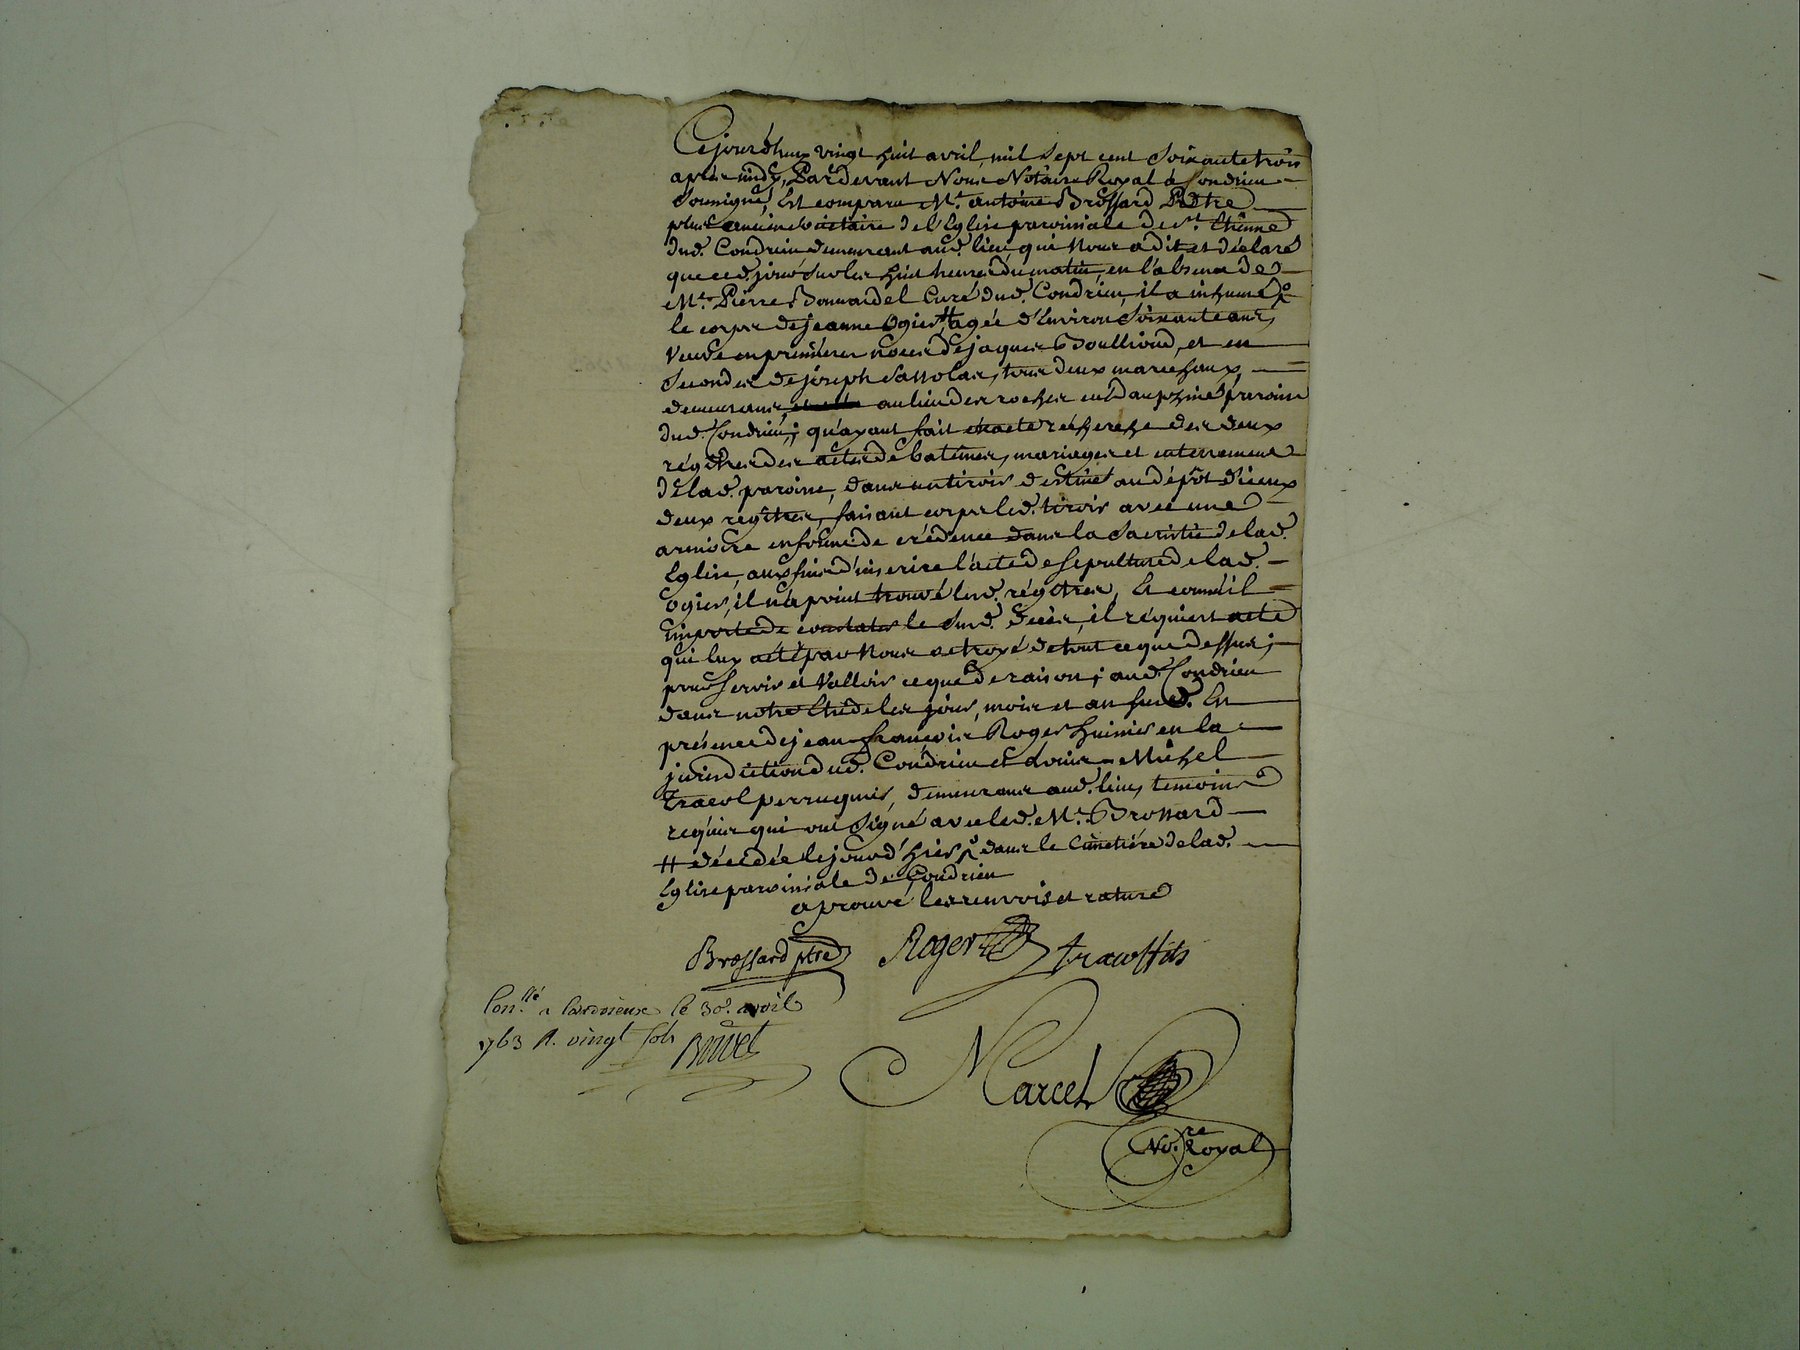 Cejourd'huy vingt huit avril mil sept cent soixante trois
après midy, Pardevant Nous Notaire Royal à Condrieu
soussigné, Est comparu Mre. antoine Brossard Prêtre
plus ancien de l'Eglise paroissiale de St. Etienne
dud. Condrieu demeurant aud. lieu, qui Nous a dit et déclaré
que ced. jour sur les huit heures du matin, en l'absence de
Mre. Pierre Bonnardel Curé dud. Condrieu, il a inhumé
le corps de jeanne Ogier, # agée d'Environ soixante ans,
Veuve en premieres noces de jaques Boullioud, et en
secondes de joseph tous deux marechaux,
demeurans au lieu des roches en dauphiné paroisse
dud. Condrieu; qu'ayant fait exacte réchérche des deux
régitres des actes de batêmes, mariages et enterremens
de lad. paroisse, dans un tiroir destiné au dépôt d'iceux
deux regitres, faisant corps led. tiroir avec une
armoire en forme de crédence dans la sacristie de lad.
Eglise, aux fins d'inscrire l'acte de sepulture de lad.
ogier, il n'a point trouvé lesd. régitres, Et comme il
Importe de constater le susd. decès, il réquiert acte
qui luy a été par Nous octroyé de tout ce que dessus;
pour servir et Valloir ce que de raison; aud. Condrieu
dans notre Etude les jour, mois et an susd. En
présence de jean françois Roger huissier en la
jurisdiction dud. Condrieu et Louis Michel
tracol perruquier, demeurans aud. lieu, temoins
requis qui ont signé avec led. Mre. Brossard
# décédée le jour d'hier dans le cimetiére de lad.
Eglise paroissiale de Condrieu
aprouvé les renvois et rature
Brossard ptre Roger tracol fils
Conllé a le 30e. avril
1763 R. vingt sols
Marcel
Nore. Royal